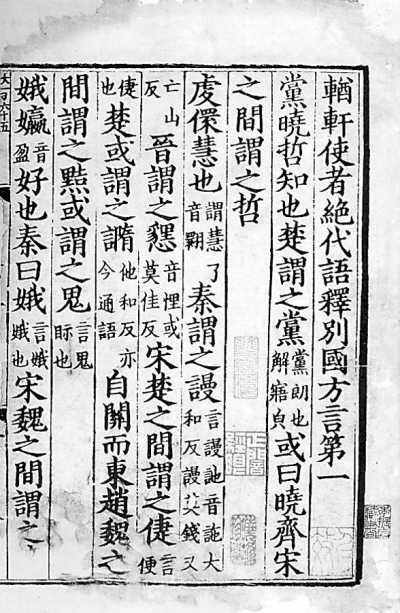 輶軒使者絕代語釋別國方言第一
黨曉哲知也楚謂之黨黨朗也解寤貌或曰曉齊宋
之間謂之哲
虔儇慧也謂慧了音翾秦謂之謾言謾訑音訑大和反謾莫錢又
亡山反晉謂之㦟音悝或莫佳反宋楚之間謂之倢言便
倢也楚或謂之䜏他和反亦今通語自關而東趙魏之
間謂之黠或謂之鬼言鬼眎也
娥㜲音盈好也秦曰娥言娥娥也宋魏之間謂之
大一百六十五